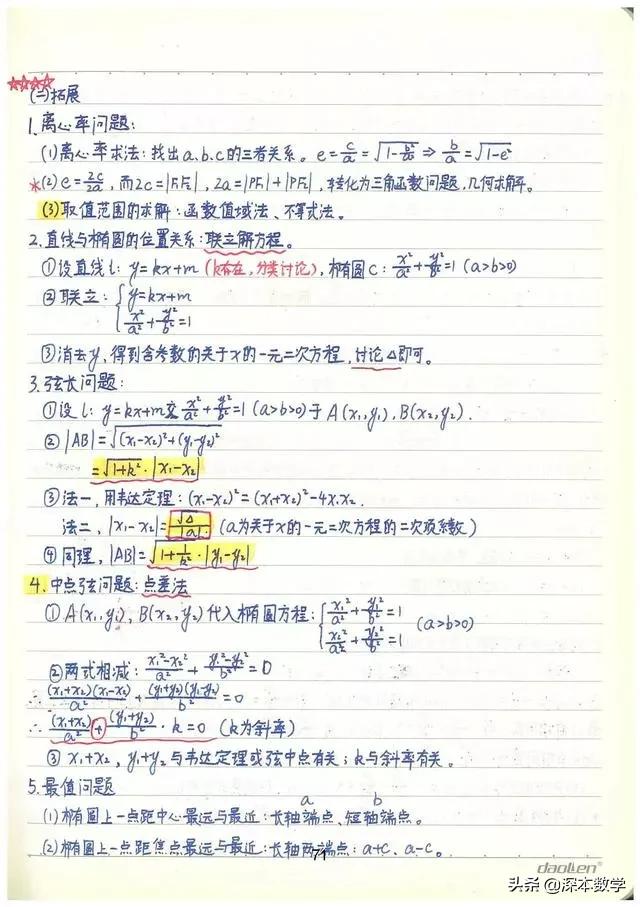 ☆☆☆☆
(二)拓展
1.离心率问题:
(1)离心率求法:找出a.b.c的三者关系。e=c/a=√(1-b²/a²)⇒b/a=√(1-e²)
*(2)e=2c/2a,而2c=|F₁F₂|,2a=|PF₁|+|PF₂|,转化为三角函数问题,几何求解。
(3)取值范围的求解:函数值域法、不等式法。
2.直线与椭圆的位置关系:联立解方程。
①设直线l:y=kx+m(k存在,分类讨论),椭圆C:x²/a²+y²/b²=1(a>b>0)
②联立:{y=kx+m
x²/a²+y²/b²=1
③消去y,得到含参数的关于x的一元二次方程,讨论△即可。
3.弦长问题:
①设l:y=kx+m交x²/a²+y²/b²=1(a>b>0)于A(x₁,y₁),B(x₂,y₂).
②|AB|=√((x₁-x₂)²+(y₁-y₂)²)
=√(1+k²)·|x₁-x₂|
③法一,用韦达定理:(x₁-x₂)²=(x₁+x₂)²-4x₁x₂.
法二,|x₁-x₂|=√△/|a|.(a为关于x的一元二次方程的二次项系数)
④同理,|AB|=√(1+1/k²)·|y₁-y₂|
4.中点弦问题:点差法
①A(x₁,y₁),B(x₂,y₂)代入椭圆方程:{x₁²/a²+y₁²/b²=1
x₂²/a²+y₂²/b²=1 (a>b>0)
②两式相减:(x₁²-x₂²)/a²+(y₁²-y₂²)/b²=0
∴(x₁+x₂)(x₁-x₂)/a²+(y₁+y₂)(y₁-y₂)/b²=0
∴(x₁+x₂)/a²+(y₁+y₂)/b²·k=0(k为斜率)
③x₁+x₂,y₁+y₂与韦达定理或弦中点有关;k与斜率有关。
5.最值问题
a b
(1)椭圆上一点距中心最远与最近:长轴端点、短轴端点。
(2)椭圆上一点距焦点最远与最近:长轴两端点:a+c、a-c。
71
daolen
头条@深本数学